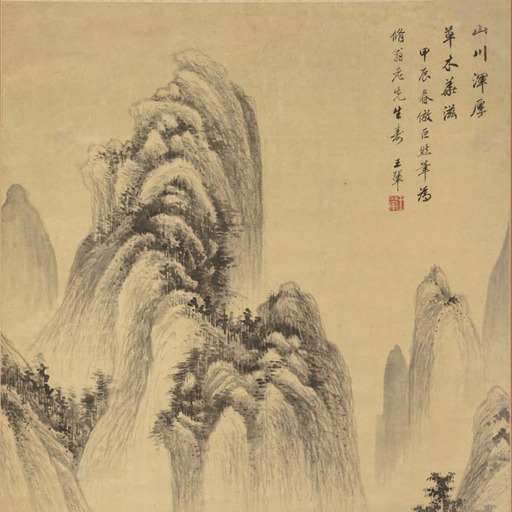 山川渾厚
草木華滋
甲辰春倣巨然筆為
脩翁老先生壽 王翬